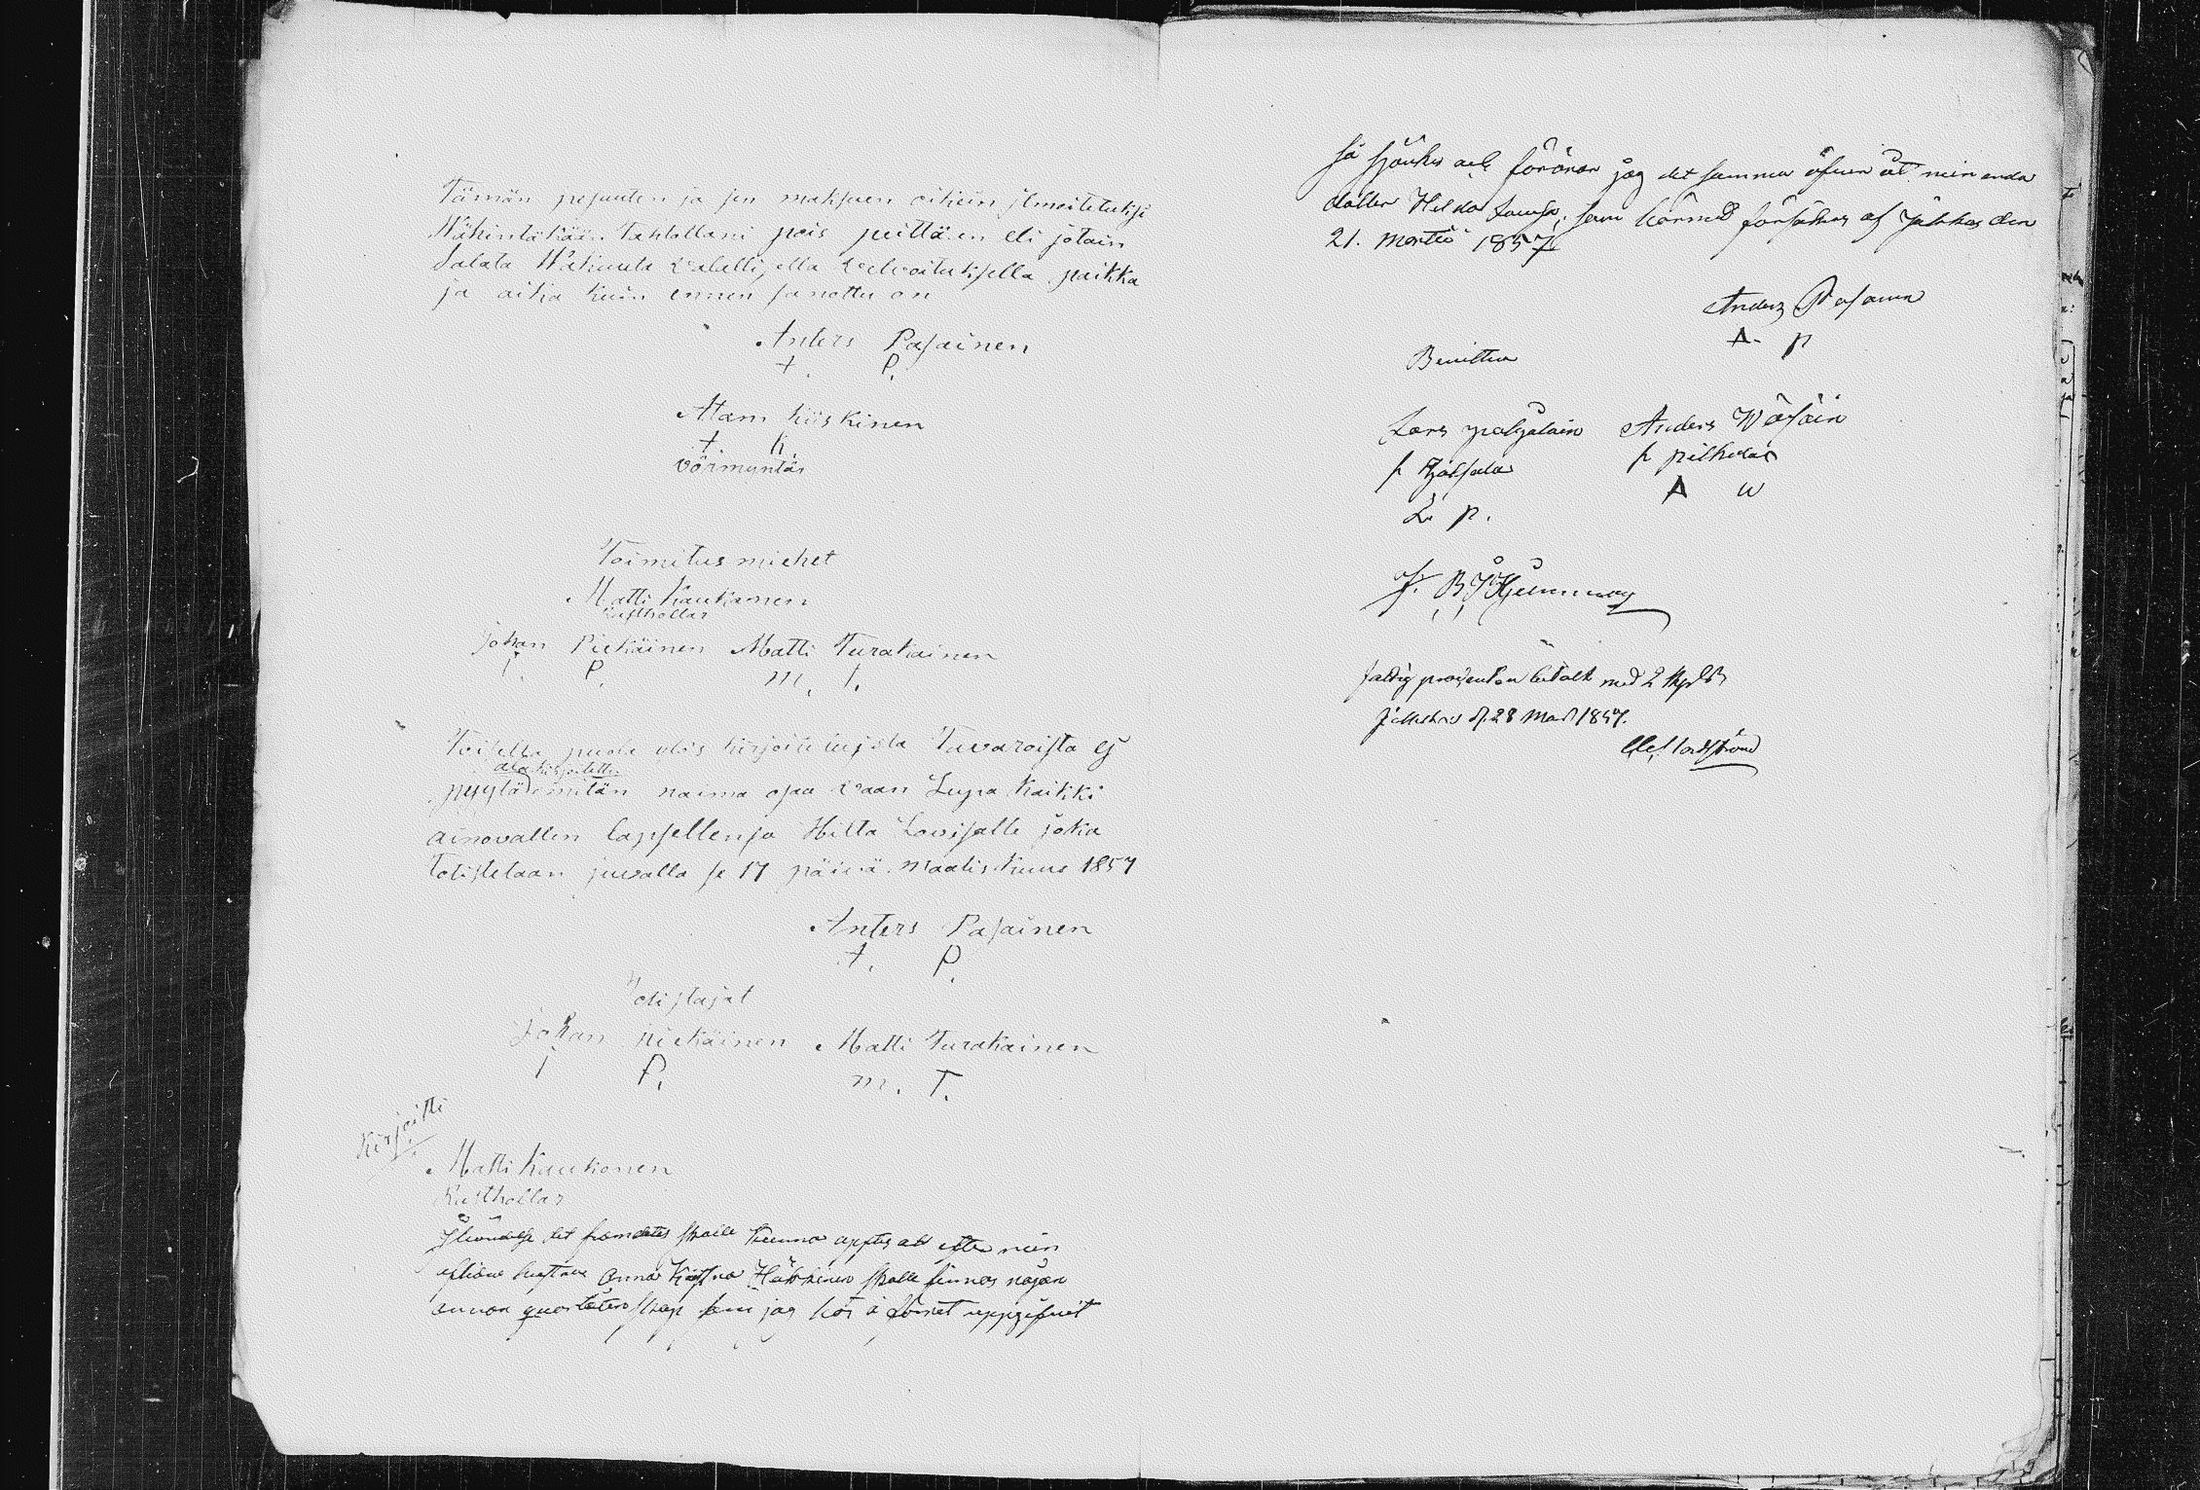 Tämän pesuulen ja sen maksuen oikein ilmoitetuksi
Wähintäkään tahtollani pois peittäen eli jotain
Salata Wakuuta valallisella velvoituksella paikka
ja aika kuin ennen sanottu on
Anters Pasainen
A. P.
Atam Kiiskinen
A. K.
vörmyntär
Toimitus miehet
Matti Kaukonen
Rusthollar
Johan Piekäinen Matti Turakainen
J. P. m. T.
Toisella puole ylös kirjoitetujsta Tavaroista ej
alakirjoitettu
pyytä mitän naima osaa vaan Lupa Kaikki
ainovallen lapsellensa Hilta Lovisalle joka
totistetaan juvalla se 17 päivä Maalis kuus 1857
Anters Pasainen
A. P.
Totistajat
Johan Piekäinen Matti Turakainen
J P. m. T.
Kirjoitti
Matti Kaukonen
Rusthollar
det framdeles skulle kunna yppas att efter min
aflidne hustru Anna Kajsa Häkkinen skulle finnas någon
annan qvarlåtenskap som jag här å Boet uppgifvit
så skänker och förärar jag det samma äfven åt min enda
dotter Hilda Lovisa, som härmed försäkras af Jokkas den
21. Martii 1857
Anders Pasanen
A. P
Bevittna
Lars paljalain Anders Wäsäin
fr fr pilkola
L. p. A W
fattig procenten betalt med 2 Rub
d. 28 Mars 1857.